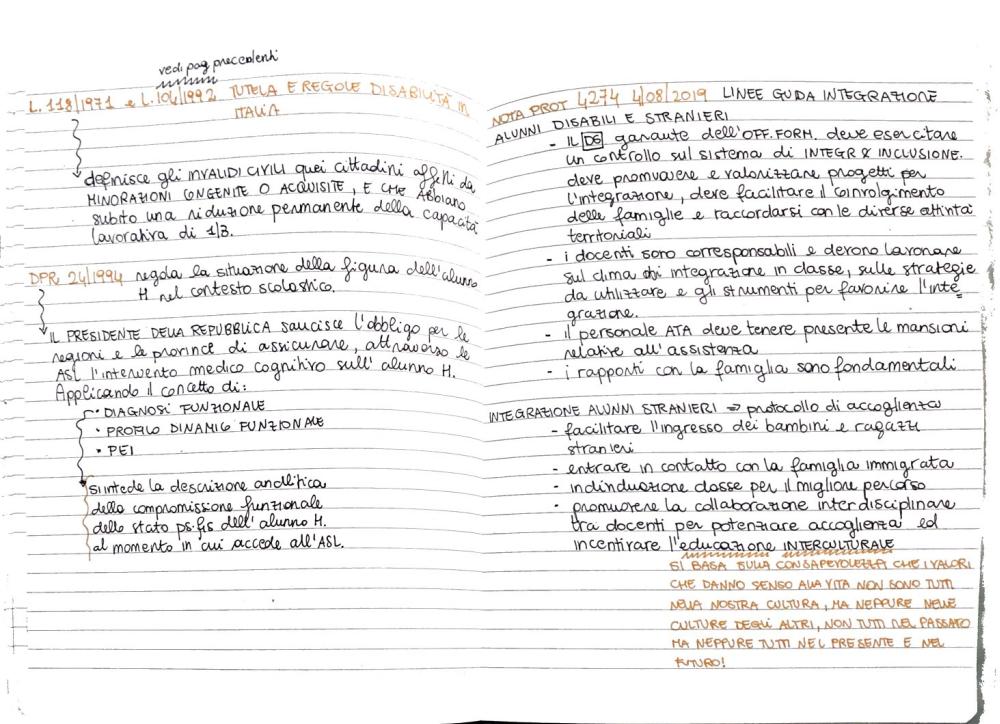 vedi pag precedenti
L. 118/1971 e L. 104/1992 TUTELA E REGOLE DISABILITÀ IN
ITALIA
definisce gli INVALIDI CIVILI quei cittadini affetti da
MINORAZIONI CONGENITE O ACQUISITE, E CHE ABBIANO
subito una riduzione permanente della capacità
lavorativa di 1/3.
DPR 24/1994 regola la situazione della figura dell'alunno
H nel contesto scolastico.
IL PRESIDENTE DELLA REPUBBLICA sancisce l'obbligo per le
regioni e le province di assicurare, attraverso le
ASL l'intervento medico cognitivo sull'alunno H.
Applicando il concetto di:
• DIAGNOSI FUNZIONALE
• PROFILO DINAMICO FUNZIONALE
• PEI
si intede la descrizione analitica
della compromissione funzionale
dello stato ps-fis dell'alunno H.
al momento in cui accede all'ASL.
NOTA PROT 4274 4/08/2019 LINEE GUIDA INTEGRAZIONE
ALUNNI DISABILI E STRANIERI
- IL DS garante dell'OFF. FORM. deve esercitare
un controllo sul sistema di INTEGR & INCLUSIONE.
deve promuovere e valorizzare progetti per
l'integrazione, deve facilitare il coinvolgimento
delle famiglie e raccordarsi con le diverse attività
territoriali
- i docenti sono corresponsabili e devono lavorare
sul clima di integrazione in classe, sulle strategie
da utilizzare e gli strumenti per favorire l'inte=
grazione.
- il personale ATA deve tenere presente le mansioni
relative all'assistenza
- i rapporti con la famiglia sono fondamentali
INTEGRAZIONE ALUNNI STRANIERI => protocollo di accoglienza
- facilitare l'ingresso dei bambini e ragazzi
stranieri
- entrare in contatto con la famiglia immigrata
- individuazione classe per il migliore percorso
- promuovere la collaborazione interdisciplinare
tra docenti per potenziare accoglienza ed
incentivare l'educazione INTERCULTURALE
SI BASA SULLA CONSAPEVOLEZZA CHE I VALORI
CHE DANNO SENSO ALLA VITA NON SONO TUTTI
NELLA NOSTRA CULTURA, MA NEPPURE NELLE
CULTURE DEGLI ALTRI, NON TUTTI NEL PASSATO
MA NEPPURE TUTTI NEL PRESENTE E NEL
FUTURO!